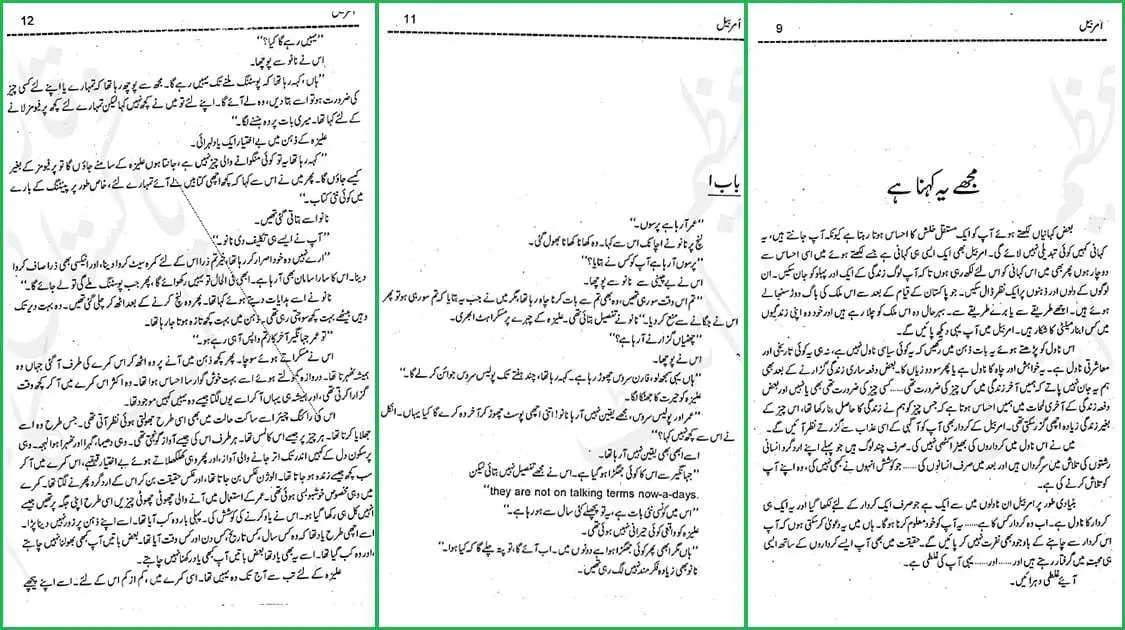 امر بیل
9
مجھے یہ کہنا ہے
بعض کہانیاں لکھتے ہوئے آپ کو ایک مستقل خلش کا احساس ہوتا رہتا ہے کیونکہ آپ جانتے ہیں، یہ
کہانی کہیں کوئی تبدیلی نہیں لائے گی۔ امر بیل بھی ایک ایسی ہی کہانی ہے جسے لکھتے ہوئے میں اسی احساس سے
دوچار ہوں پھر بھی میں اس کہانی کو اس لئے لکھ رہی ہوں تاکہ آپ لوگ زندگی کے ایک اور پہلو کو جان سکیں۔ ان
لوگوں کے دلوں اور ذہنوں پر ایک نظر ڈال سکیں۔ جو پاکستان کے قیام کے بعد سے اس ملک کی باگ دوڑ سنبھالے
ہوئے ہیں۔ اچھے طریقے سے یا برے طریقے سے۔ بہرحال وہ اس ملک کو چلا رہے ہیں اور خود وہ اپنی زندگیوں
میں کس ابنارمیلٹی کا شکار ہیں۔ امر بیل میں آپ یہی دیکھ پائیں گے۔
اس ناول کو پڑھتے ہوئے یہ بات ذہن میں رکھیں کہ یہ کوئی سیاسی ناول نہیں ہے، نہ ہی یہ کوئی تاریخی اور
معاشرتی ناول ہے۔ یہ خواہش اور چاہ کا ناول ہے یا پھر سود و زیاں کا۔ بعض دفعہ ساری زندگی گزارنے کے بعد بھی
ہم یہ جان نہیں پاتے کہ ہمیں آخر زندگی میں کس چیز کی ضرورت تھی..... کسی چیز کی ضرورت تھی بھی یا نہیں اور بعض
دفعہ زندگی کے آخری لمحات میں ہمیں احساس ہوتا ہے کہ جس چیز کو ہم نے زندگی کا حاصل بنا رکھا تھا، اس چیز کے
بغیر زندگی زیادہ اچھی گزر سکتی تھی۔ امر بیل کے کردار بھی آپ کو آگہی کے اسی عذاب سے گزرتے نظر آئیں گے۔
میں نے اس ناول میں کرداروں کی بھیڑ اکٹھی نہیں کی۔ صرف چند لوگ ہیں جو پہلے اپنے اردگرد انسانی
رشتوں کی تلاش میں سرگرداں ہیں اور بعد میں صرف انسانوں کی ...... جو کوشش انہوں نے بھی نہیں کی، وہ اپنے آپ
کو تلاش کرنے کی ہے۔
بنیادی طور پر امر بیل ان ناولوں میں سے ایک ہے جو صرف ایک کردار کے لئے لکھا گیا اور یہ ایک ہی
کردار کا ناول ہے۔ اب وہ کردار کس کا ہے..... یہ آپ کو خود معلوم کرنا ہوگا۔ ہاں میں یہ دعویٰ کر سکتی ہوں کہ آپ
اس کردار سے چاہنے کے باوجود بھی نفرت نہیں کر پائیں گے۔ حقیقت میں بھی آپ ایسے کرداروں کے ساتھ ایسی
ہی محبت میں گرفتار رہتے ہیں اور.....اور..... یہی آپ کی غلطی ہے۔
آیئے غلطی دہرائیں۔
امر بیل
11
باب ۱
"عمر آ رہا ہے پرسوں۔"
لنچ پر نانو نے اچانک اس سے کہا۔ وہ کھانا کھانا بھول گئی۔
"پرسوں آ رہا ہے آپ کو کس نے بتایا؟"
اس نے بے یقینی سے نانو سے پوچھا۔
"تم اس وقت سو رہی تھیں، وہ بھی تم سے بات کرنا چاہ رہا تھا، مگر میں نے جب یہ بتایا کہ تم سو رہی ہو تو پھر
اس نے جگانے سے منع کر دیا۔" نانو نے تفصیل بتائی تھی۔ علیزہ کے چہرے پر مسکراہٹ ابھری۔
"چھٹیاں گزارنے آ رہا ہے؟"
اس نے پوچھا۔
"ہاں یہی سمجھ لو، فارن سروس چھوڑ رہا ہے۔ کہہ رہا تھا، چند ہفتے تک پولیس سروس جوائن کر لے گا۔"
علیزہ کو حیرت کا جھٹکا لگا۔
"عمر اور پولیس سروس، مجھے یقین نہیں آ رہا نانو! اتنی اچھی پوسٹ چھوڑ کر آخر وہ کرے گا کیا یہاں۔ انکل
نے اس سے کچھ نہیں کہا؟"
اسے ابھی بھی یقین نہیں آ رہا تھا۔
"جہانگیر سے اس کا کوئی جھگڑا ہو گیا ہے۔ اس نے مجھے تفصیل نہیں بتائی لیکن
they are not on talking terms now-a-days."
"اس میں کون سی نئی بات ہے، یہ تو پچھلے کئی سال سے ہو رہا ہے۔"
علیزہ کو واقعی کوئی حیرانی نہیں ہوئی تھی۔
"ہاں مگر ابھی پھر کوئی جھگڑا ہوا ہے دونوں میں۔ اب آئے گا، تو پتہ چلے گا کہ کیا ہوا۔"
نانو بھی زیادہ فکر مند نہیں لگ رہی تھیں۔
امر بیل
12
"یہیں رہے گا کیا؟"
اس نے نانو سے پوچھا۔
"ہاں، کہہ رہا تھا کہ پوسٹنگ ملنے تک یہیں رہے گا۔ مجھ سے پوچھ رہا تھا کہ تمہارے یا اپنے لئے کسی چیز
کی ضرورت ہو تو اسے بتا دیں، وہ لے آئے گا۔ اپنے لئے تو میں نے کچھ نہیں کہا لیکن تمہارے لئے کچھ پرفیومز لانے
کے لئے کہا تھا۔ میری بات پر وہ ہنسنے لگا۔"
علیزہ کے ذہن میں بے اختیار ایک یاد لہرائی۔
"کہہ رہا تھا یہ تو کوئی منگوانے والی چیز نہیں ہے، جانتا ہوں علیزہ کے سامنے جاؤں گا تو پرفیومز کے بغیر
کیسے جاؤں گا۔ پھر میں نے اس سے کہا کہ کچھ اچھی کتابیں لے آئے تمہارے لئے، خاص طور پر پینٹنگ کے بارے
میں کوئی نئی کتاب۔"
نانو اسے بتاتی گئی تھیں۔
"آپ نے ایسے ہی تکلیف دی نانو۔"
"ارے نہیں وہ خود اصرار کر رہا تھا، خیر تم ذرا اس کے لئے کمرہ سیٹ کروا دینا، اور انیکسی بھی ذرا صاف کروا
دینا۔ اس کا سارا سامان بھی آ رہا ہے۔ ابھی فی الحال تو یہیں رکھوائے گا، پھر جب پوسٹنگ ملے گی تو لے جائے گا۔"
نانو نے اسے ہدایات دیتے ہوئے کہا تھا۔ پھر وہ لنچ کرنے کے بعد اٹھ کر چلی گئی تھیں۔ وہ بہت دیر تک
وہیں بیٹھے بہت کچھ سوچتی رہی تھی۔ ذہن میں بہت کچھ تازہ ہوتا جا رہا تھا۔
"تو عمر جہانگیر آخر کار تم واپس آ ہی رہے ہو۔"
اس نے مسکراتے ہوئے سوچا۔ پھر کچھ ذہن میں آنے پر وہ اٹھ کر اس کمرے کی طرف آ گئی جہاں وہ
ہمیشہ ٹھہرتا تھا۔ دروازہ کھولتے ہوئے اسے بہت خوش گوار سا احساس ہوا تھا۔ وہ اکثر اس کمرے میں آ کر کچھ وقت
گزارا کرتی تھی، اور ہمیشہ ہی یہاں آ کر اسے یوں لگتا جیسے وہ یہیں کہیں موجود تھا۔
اس کی راکنگ چیئر اسے ساکت حالت میں بھی اسی طرح جھولتی ہوئی نظر آتی تھی۔ جس طرح وہ اسے
جھلایا کرتا تھا۔ ہر چیز پر جیسے اس کا لمس تھا۔ ہر طرف اس کی جیسے آواز گونجتی تھی۔ وہی دھیما، گہرا اور ٹھہرا ہوا لہجہ۔ وہی
پرسکون دل کے کہیں اندر تک اتر جانے والی آواز، اور پھر وہی کھلکھلاتے ہوئے بے اختیار قہقہے، اس کمرے میں آ کر
سب کچھ جیسے زندہ ہو جاتا تھا۔ الوژن عکس بن جاتا تھا، اور عکس حقیقت بن کر اس کے اردگرد پھرنے لگتا تھا۔ کمرے
میں وہی مخصوص خوشبو بسی ہوئی تھی۔ عمر کے استعمال میں آنے والی چھوٹی چھوٹی چیزیں اسی طرح اپنی جگہ پر تھیں جیسے
انہیں کل ہی رکھا گیا ہو۔ اس نے یاد کرنے کی کوشش کی۔ پہلی بار وہ کب آیا تھا۔ اسے اپنے ذہن پر زور نہیں دینا پڑا۔
اسے اچھی طرح یاد تھا کہ وہ کس سال، کس تاریخ، کس دن اور کس وقت آیا تھا۔ بعض باتیں آپ کبھی بھولنا نہیں چاہتے
اور وہ کب گیا تھا۔ اسے یہ بھی یاد تھا بعض باتیں آپ کبھی یاد رکھنا نہیں چاہتے۔
علیزہ کے لئے تب سے آج تک وہ یہیں تھا۔ اسی کمرے میں، کم از کم اس کے لئے۔ اسے اپنے پیچھے